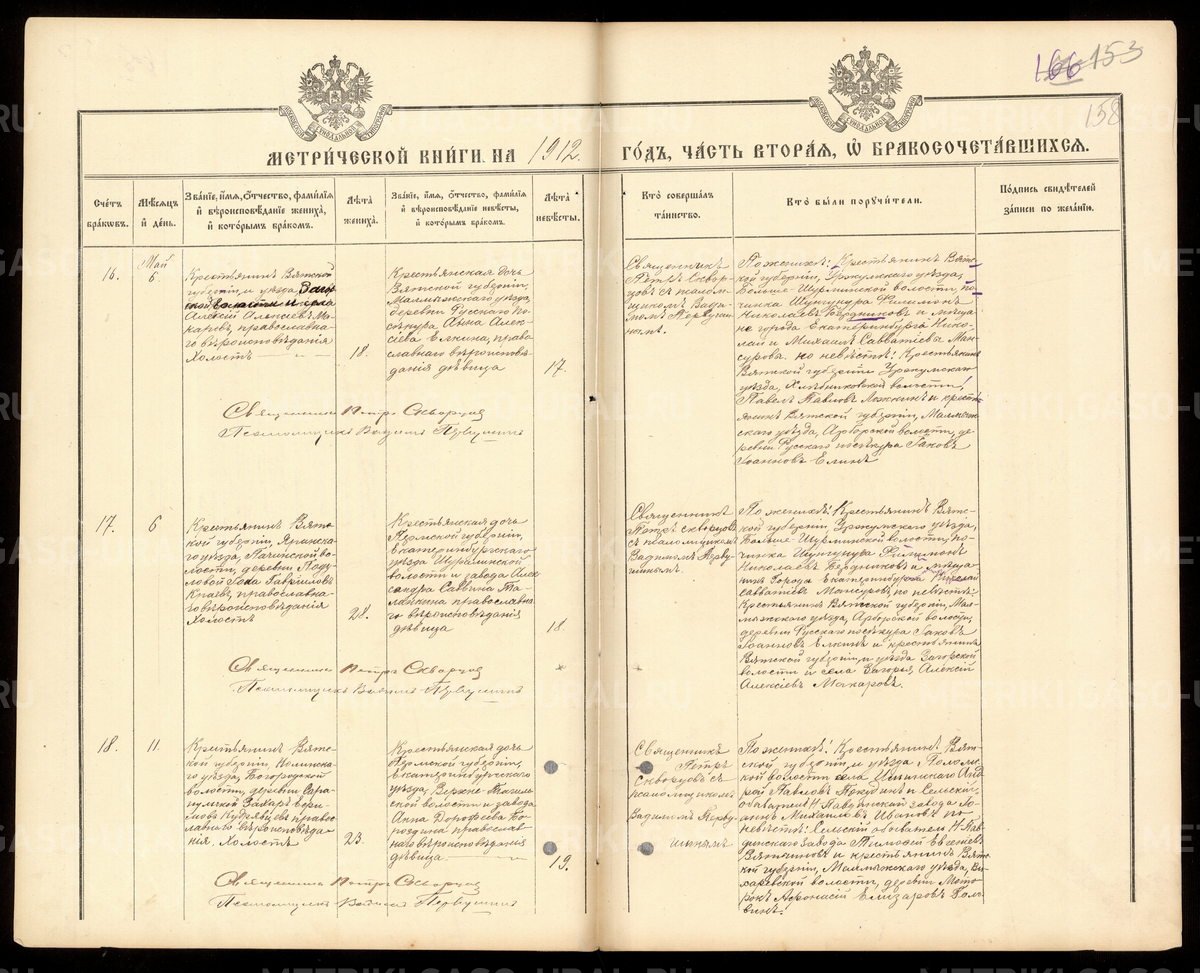 166 153
158
МЕТРИ́ЧЕСКОЙ КНИ́ГИ НА 1912 ГО́ДЪ, ЧА́СТЬ ВТОРА́Я, Ѡ БРАКОСОЧЕТА́ВШИХСЯ.
Сче́тъ бра́ковъ.
Мѣ́сяцъ й де́нь.
Зва́нїе, и́мя, о́тчество, фами́лїя
й вѣроисповѣ́данїе жениха́,
й кото́рымъ бра́комъ.
Лѣ́та жениха́.
Зва́нїе, и́мя, о́тчество, фами́лїя
й вѣроисповѣ́данїе невѣ́сты,
й кото́рымъ бра́комъ.
Лѣ́та невѣ́сты.
Кто̀ соверша́лъ
та́инство.
Кто̀ бы́ли пору́чители.
По́дпись свидѣ́телей
за́писи по жела́нїю.
16.
Май
6.
Крестьянинъ Вятской
губернiи и уѣзда, Загор-
ской волости и села
Алексiй Алексѣевъ Ма-
каровъ, православна-
го вѣроисповѣданiя
Холостъ
18.
Крестьянская дочь
Вятской губернiи,
Малмыжскаго уѣзда,
деревни Русскаго По-
секура Анна Алек-
сiева Елкина, право-
славнаго вѣроисповѣ-
данiя дѣвица
17.
Священникъ
Петръ Сквор-
цовъ съ псалом-
щикомъ Вади-
момъ Первуши-
нымъ.
По женихѣ: Крестьянинъ Вят-
ской губернiи, Уржумскаго уѣзда,
Больше-Шурминской волости, по-
чинка Шунгунура Филимонъ
Николаевъ Бердниковъ и мѣща-
не города Екатеринбурга Нико-
лай и Михаилъ Савватiевы Ман-
суровы. по невѣстѣ: Крестьянинъ
Вятской губернiи Уржумскаго
уѣзда, Хлѣбниковской волости,
Павелъ Павловъ Ложкинъ и крестья-
янинъ Вятской губернiи, Малмыж-
скаго уѣзда, Арборской волости, де-
ревни Русскаго посѣкура Iаковъ
Iоанновъ Елкинъ
Священникъ Петръ Скворцовъ
Псаломщикъ Вадимъ Первушинъ
17.
6
Крестьянинъ Вятс-
кой губернiи, Яранска-
го уѣзда, Пачинской во-
лости, деревни
Гаврiиловъ
Князевъ, православна-
го вѣроисповѣданiя
Холостъ
28.
Крестьянская дочь
Пермской губернiи,
Екатеринбургскаго
уѣзда Шуралинской
волости и завода Алек-
сандра Саввина Та-
ланкина православна-
го вѣроисповѣданiя
дѣвица
18.
Священникъ
Петръ Скворцовъ
съ псаломщикомъ
Вадимомъ Перву-
шинымъ.
По женихѣ: Крестьянинъ Вят-
ской губернiи, Уржумскаго уѣзда,
Больше-Шурминской волости, по-
чинка Шунгунура Филимонъ
Николаевъ Бердниковъ и мѣща-
нинъ Города Екатеринбурга Николай
Савватiевъ Мансуровъ, по невѣстѣ:
Крестьянинъ Вятской губернiи, Мал-
мыжскаго уѣзда, Арборской волости,
деревни Русскаго посѣкура Iаковъ
Iоанновъ Елкинъ и крестьянинъ
Вятской губернiи, и уѣзда Загорской
волости и села Загорья, Алексiй
Алексѣевъ Макаровъ.
Священникъ Петръ Скворцовъ
Псаломщикъ Вадимъ Первушинъ
18.
11.
Крестьянинъ Вятс-
кой губернiи, Нолинска-
го уѣзда, Богородской
волости, деревни Сара-
пульской Захаръ
Кудрявцевъ право-
славнаго вѣроисповѣда-
нiя, Холостъ
23.
Крестьянская дочь
Пермской губернiи,
Екатеринбургскаго
уѣзда, Верхне-Тагиль-
ской волости и завода
Анна Дорофеева Бо-
роздина православ-
наго вѣроисповѣданiя
дѣвица
19.
Священникъ
Петръ
Скворцовъ съ
псаломщикомъ
Вадимомъ Перву-
шинымъ
По женихѣ: Крестьянинъ Вят-
ской губернiи, и уѣзда,
кой волости села Анд-
рей Павловъ и Сельскiй
обыватель Н Павдинскаго завода Iо-
аннъ Михаиловъ Ивановъ по
невѣстѣ: Сельскiй обыватель Н Пав-
динскаго Завода Тимофей Евгенiевъ
Вяткиновъ и крестьянинъ Вятс-
кой губернiи, Малмыжскаго уѣзда,
волости, деревни
Афонасiй Елизаровъ Голо-
винъ.
Священникъ Петръ Скворцовъ
Псаломщикъ Вадимъ Первушинъ
METRIKI.GASO-URAL.RU